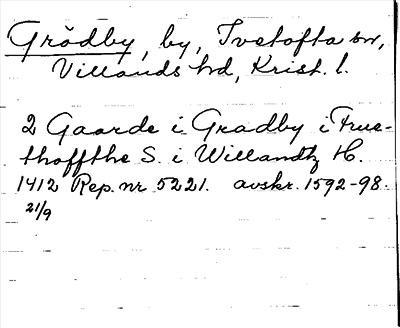 Grödby, by, Ivetofta sn,
Villands hd, Krist. l.
2 Gaarde i Gradby i Frue-
thoffthe S. i Willandtz H.
1412 Rep. nr 5221. avskr. 1592-98.
21/9